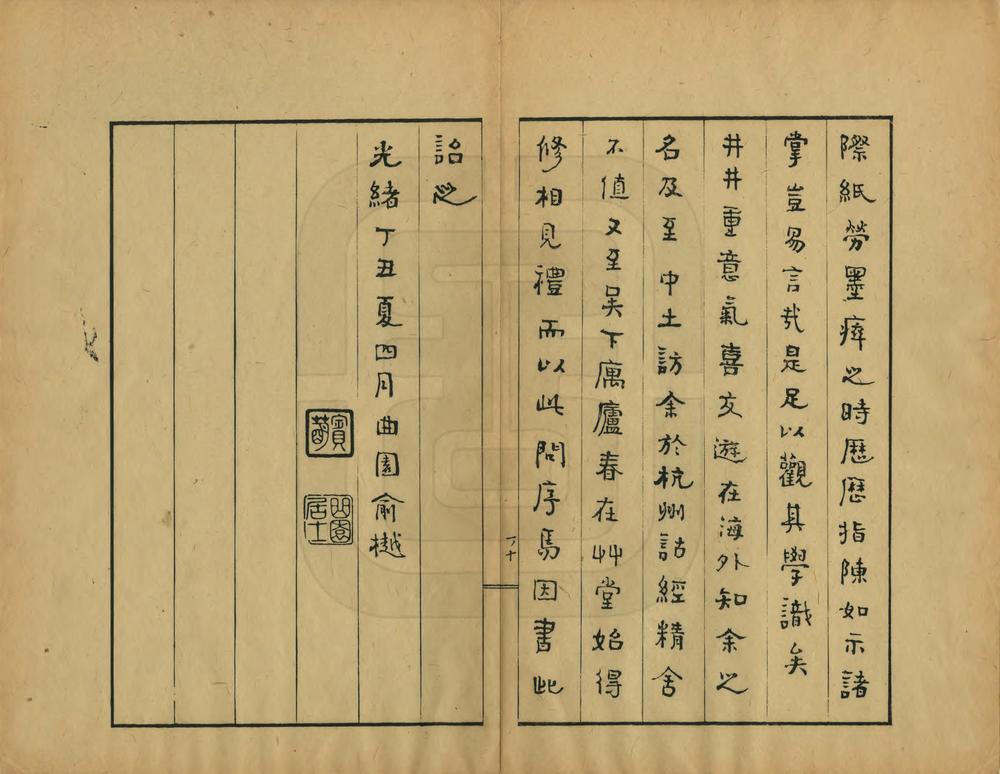 際紙勞墨瘁之時歷歷指陳如示諸
掌豈易言哉是足以觀其學識矣
井井重意氣喜友遊在海外知余之
名及至 中土訪余於杭州詁經精舍
不值又至吳下寓廬春在艸堂始得
修相見禮而以此問序焉因書此
詒之
光緒丁丑夏四月曲園俞樾
曲園居士
十